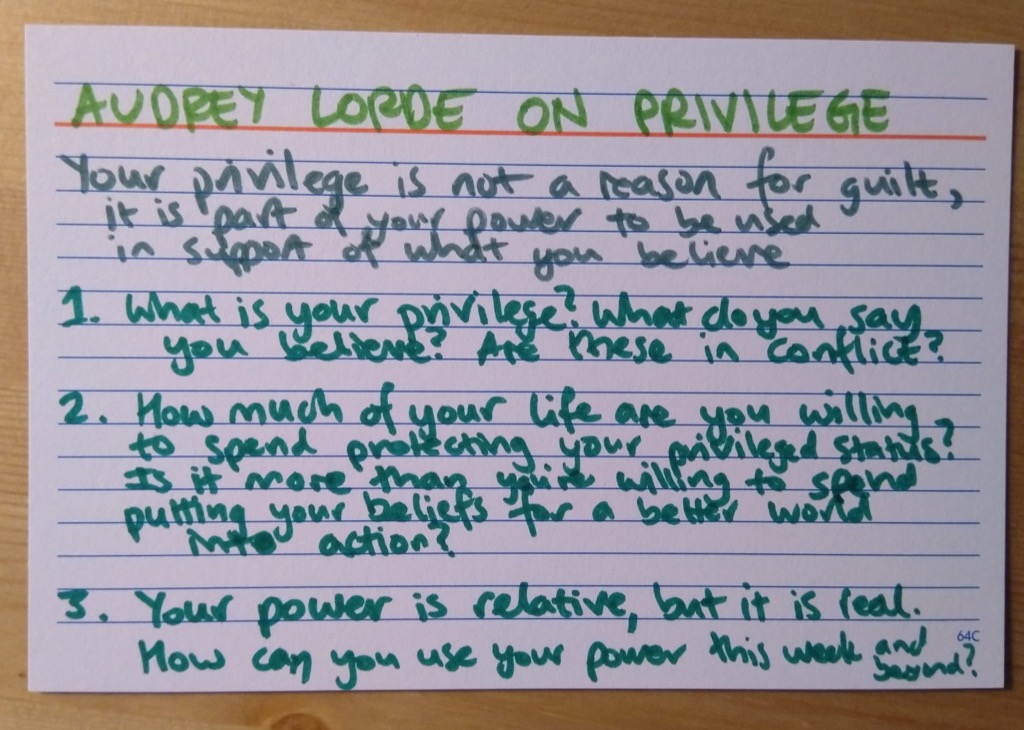 AUDREY LORDE ON PRIVILEGE
Your privilege is not a reason for guilt,
it is part of your power to be used
in support of what you believe
1. What is your privilege? What do you say
you believe? Are these in conflict?
2. How much of your life are you willing
to spend protecting your privileged status?
Is it more than you're willing to spend
putting your beliefs for a better world
into action?
3. Your power is relative, but it is real.
64C
How can you use your power this week and
beyond?